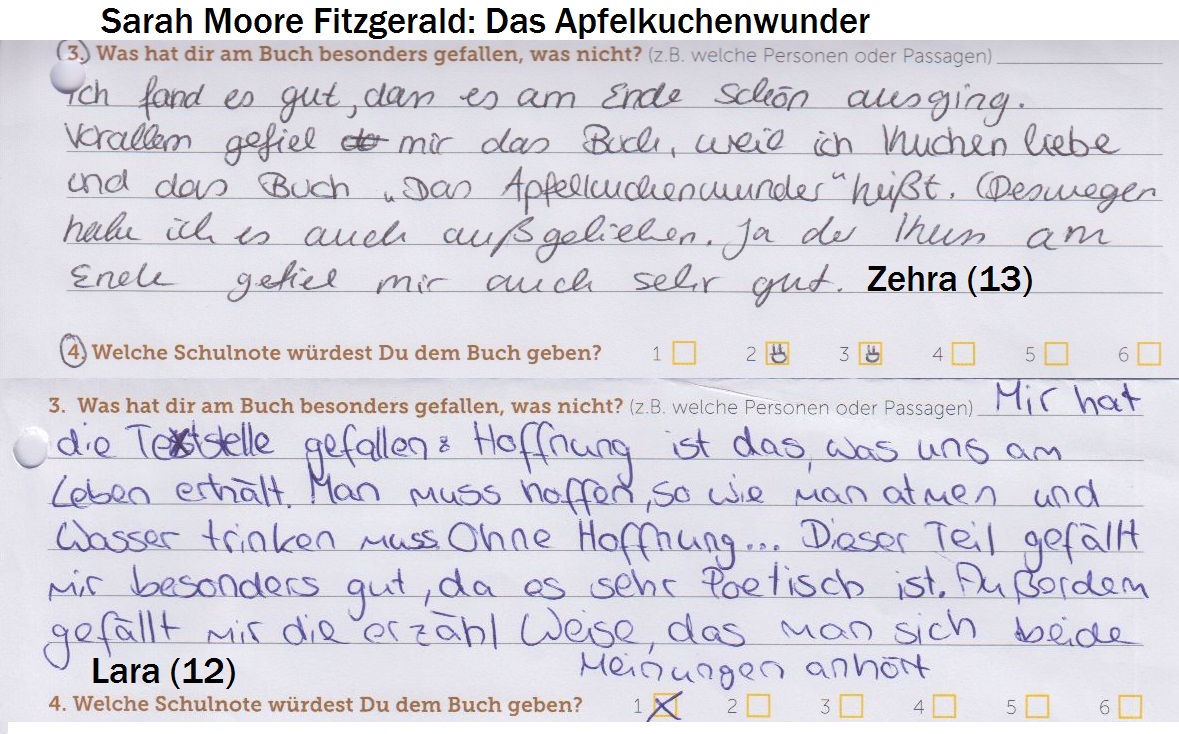 Sarah Moore Fitzgerald: Das Apfelkuchenwunder
3. Was hat dir am Buch besonders gefallen, was nicht? (z.B. welche Personen oder Passagen)
Ich fand es gut, dass es am Ende schön ausging.
Vorallem gefiel mir das Buch, weil ich Kuchen liebe
und das Buch „Das Apfelkuchenwunder“ heißt. (Deswegen
habe ich es auch außgeliehen. Ja der Kuss am
Ende gefiel mir auch sehr gut. Zehra (13)
4. Welche Schulnote würdest Du dem Buch geben? 1 2 3 4 5 6
3. Was hat dir am Buch besonders gefallen, was nicht? (z.B. welche Personen oder Passagen) Mir hat
die Textstelle gefallen: Hoffnung ist das, was uns am
Leben erhält. Man muss hoffen, so wie man atmen und
Wasser trinken muss. Ohne Hoffnung... Dieser Teil gefällt
mir besonders gut, da es sehr Poetisch ist. Außerdem
gefällt mir die erzähl Weise, das man sich beide
Meinungen anhört
Lara (12)
4. Welche Schulnote würdest Du dem Buch geben? 1 2 3 4 5 6